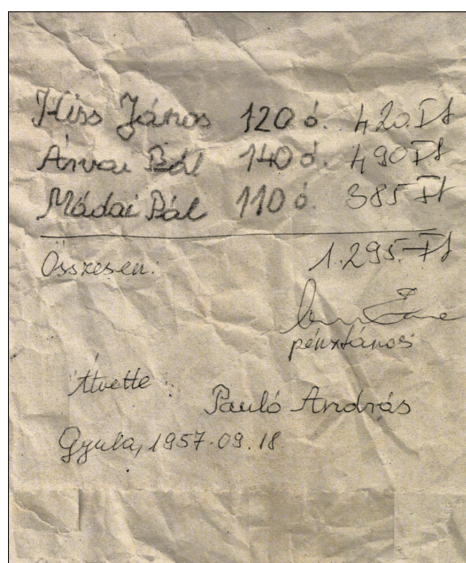 Kiss János 120 ó. 420 Ft
Árvai Pál 140 ó. 490 Ft
Mádai Pál 110 ó. 385 Ft
Összesen: 1.295.- Ft
pénztános
Átvette:
Pauló András
Gyula, 1957.09.18